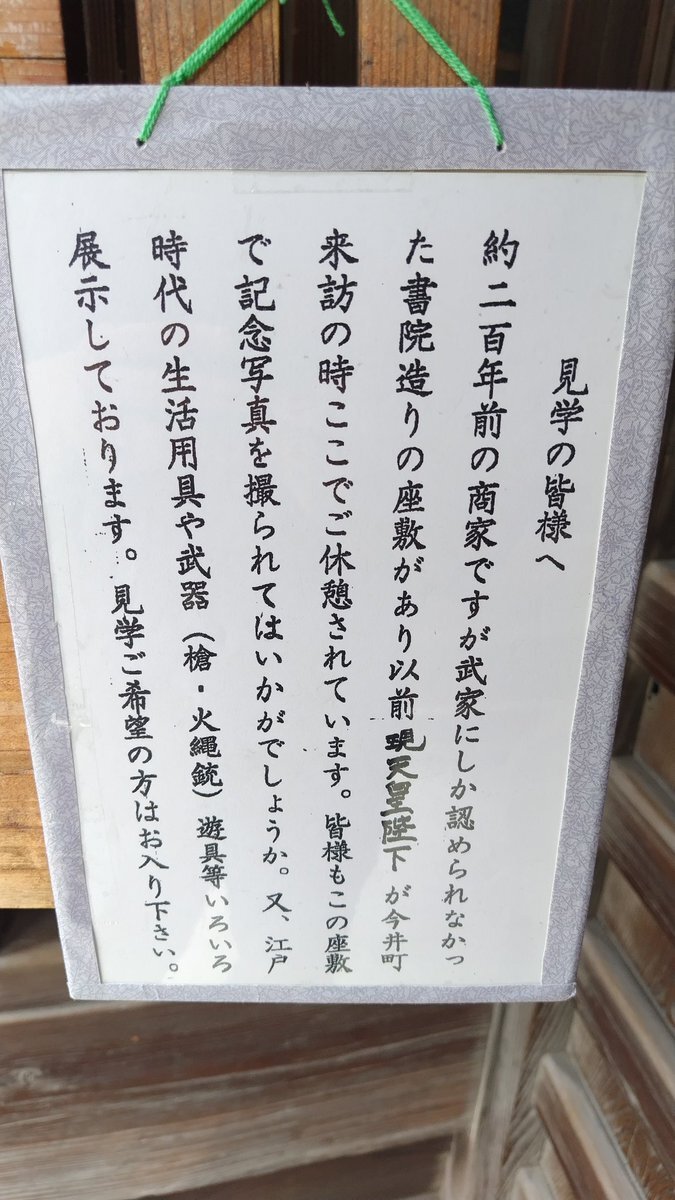 見学の皆様へ
約二百年前の商家ですが武家にしか認められなかっ
た書院造りの座敷があり以前現天皇陛下が今井町
来訪の時ここでご休憩されています。皆様もこの座敷
で記念写真を撮られてはいかがでしょうか。又、江戸
時代の生活用具や武器（槍・火縄銃）遊具等いろいろ
展示しております。見学ご希望の方はお入り下さい。